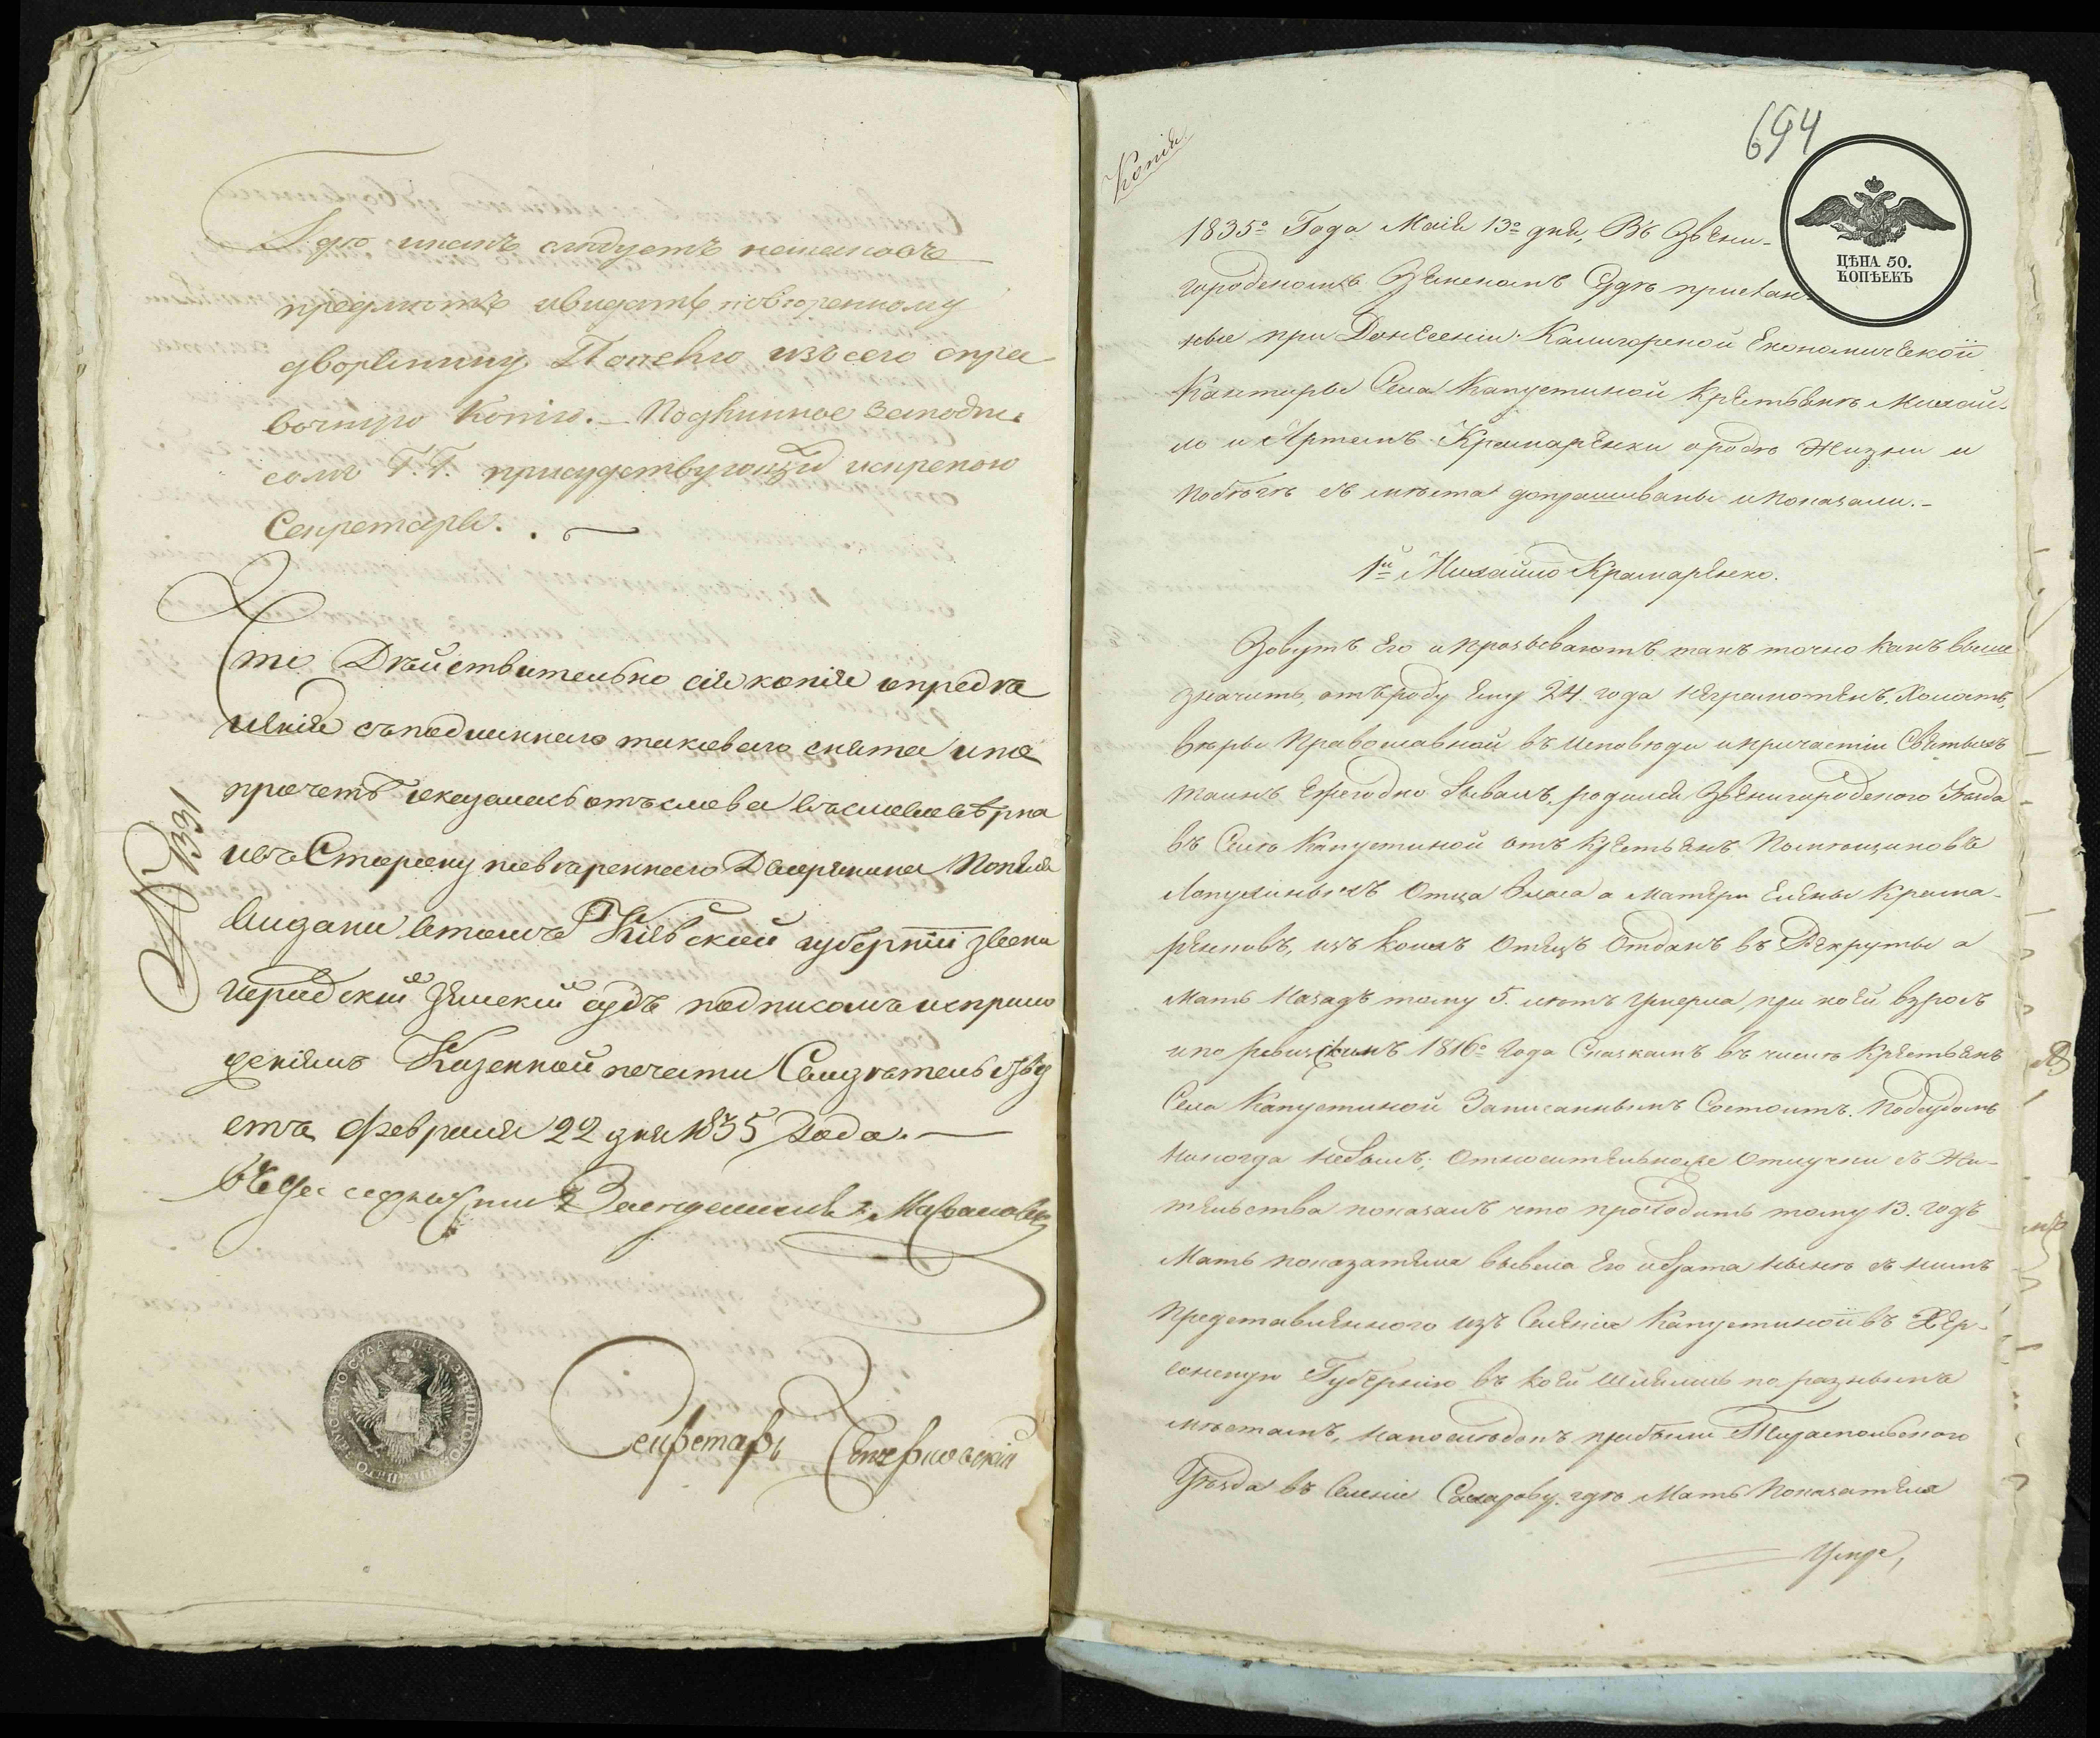 кдю инанъ следуетъ
предметъ ивидать повѣренному
дворянину Попелю изъ сего опре
копію. – Подлинное заподпи
сомъ Г.Г. присудствующихъ искрепою
Секретаря. . —
Что Дѣйствительно сія копія опредѣ
ленія съподлиннаго таковаго снята ипо
прочетѣ оказалась отъслова въслово вѣрна
ивъ Сторону повѣреннаго Дворянина Попеля
видани въ томъ Кіевской губерніи звени
городскій земскій судъ подписомъ иприло
женіемъ Казенной печати Свидѣтельству
етъ, Февраля 22 дня 1835 Года. —
Секретарь
№ 1391
694
Копія
ЦѢНА 50.
КОПѢЕКЪ
1835го Года Маія 13го дня, Въ Звени-
городскомъ Земскомъ Судѣ прислан-
ные при Донесеніи Калигорской Економической
Канторы Села Капустиной Крестьяне Михай-
ло и Артемъ Крамаренки о родѣ Жизни и
побѣгѣ съ мѣста допрашиваны и показали. –
1й Михайло Крамаренко.
Зовутъ Его и прозываютъ такъ точно какъ выше
значитъ, отъ роду Ему 24 года неграмотенъ, Холостъ,
вѣры Православной въ исповѣди и причастіи Святыхъ
таинъ Ежегодно бывалъ, родился Звенигородского Уѣзда
въ Селѣ Капустиной отъ Крестьянъ Помѣщиковъ
Лопухиныхъ Отца Власа а Матери Елены Крама-
ренковъ, изъ коихъ Отецъ Отданъ въ Рекруты а
Мать Назадъ тому 5. лѣтъ умерла, при коей взросъ
и по ревизскимъ 1816го Года Сказкамъ въ числѣ Крестьянъ
Села Капустиной Записаннымъ Состоитъ. Подсудомъ
Никогда небылъ; Относительноже Отлучки съ Жи-
тельства показалъ что проходитъ тому 13. годъ
Мать показателя вывела Его и брата нынѣ съ нимъ
представленного изъ Селенія Капустиной въ Хер-
сонскую Губернію въ коей Шлялись по разнымъ
мѣстамъ, напослѣдокъ прибыли Тираспольского
Уѣзда въ Селеніе гдѣ Мать Показателя
Умре,